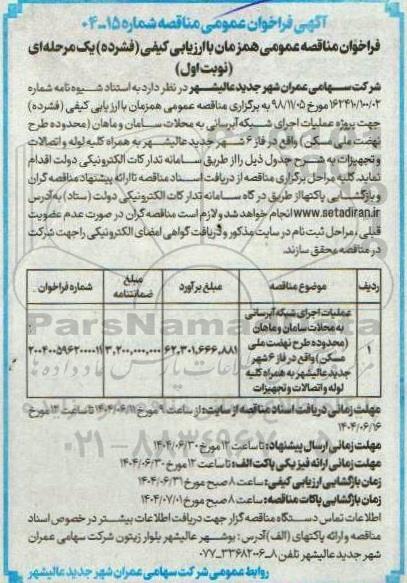 آگهی فراخوان عمومی مناقصه شماره ۱۵-۰۴
فراخوان مناقصه عمومی همزمان با ارزیابی کیفی (فشرده) یک مرحله‌ای
(نوبت اول)
شرکت سهامی عمران شهر جدید عالیشهر در نظر دارد به استناد شیوه نامه شماره
۱۶۲۴۱۰/۱۰/۰۲ مورخ ۹۸/۱۱/۰۵ به برگزاری مناقصه عمومی همزمان با ارزیابی کیفی (فشرده)
جهت پروژه عملیات اجرای شبکه آبرسانی به محلات سامان و ماهان (محدوده طرح
نهضت ملی مسکن) واقع در فاز ۶ شهر جدید عالیشهر به همراه کلیه لوله و اتصالات
و تجهیزات به شرح جدول ذیل را از طریق سامانه تدارکات الکترونیکی دولت اقدام
نماید. کلیه مراحل برگزاری مناقصه از دریافت اسناد مناقصه تا ارائه پیشنهاد مناقصه گران
و بازگشایی پاکتها از طریق درگاه سامانه تدارکات الکترونیکی دولت (ستاد) به آدرس
www.setadiran.ir انجام خواهد شد و لازم است مناقصه گران در صورت عدم عضویت
قبلی، مراحل ثبت نام در سایت مذکور و دریافت گواهی امضای الکترونیکی را جهت شرکت
در مناقصه محقق سازند.
ردیف موضوع مناقصه مبلغ برآورد مبلغ ضمانتنامه شماره فراخوان
۱ عملیات اجرای شبکه آبرسانی
به محلات سامان و ماهان
(محدوده طرح نهضت ملی
مسکن) واقع در فاز ۶ شهر
جدید عالیشهر به همراه کلیه
لوله و اتصالات و تجهیزات
۶۲،۳۰۱،۶۶۶،۸۸۱ ۳،۲۰۰،۰۰۰،۰۰۰ ۲۰۰۴۰۰۵۹۶۲۰۰۰۰۱۱
ParsNamadData
۰۲۱-۸۸۳۴۹۶۷۰
مهلت زمانی دریافت اسناد مناقصه از سایت: از ساعت ۹ مورخ ۱۴۰۴/۰۶/۱۱ تا ساعت ۱۴ مورخ
۱۴۰۴/۰۶/۱۶
مهلت زمانی ارسال پیشنهاد: تا ساعت ۱۲ مورخ ۱۴۰۴/۰۶/۳۰
مهلت زمانی ارائه فیزیکی پاکت الف: تا ساعت ۱۲ مورخ ۱۴۰۴/۰۶/۳۰
زمان بازگشایی ارزیابی کیفی: ساعت ۸ صبح مورخ ۱۴۰۴/۰۶/۳۱
زمان بازگشایی پاکات مناقصه: ساعت ۸ صبح مورخ ۱۴۰۴/۰۷/۰۱
اطلاعات تماس دستگاه مناقصه گزار جهت دریافت اطلاعات بیشتر در خصوص اسناد
مناقصه و ارائه پاکتهای (الف) آدرس: بوشهر عالیشهر بلوار زیتون شرکت سهامی عمران
شهر جدید عالیشهر تلفن ۸-۳۳۶۸۲۰۶-۰۷۷
روابط عمومی شرکت سهامی عمران شهر جدید عالیشهر